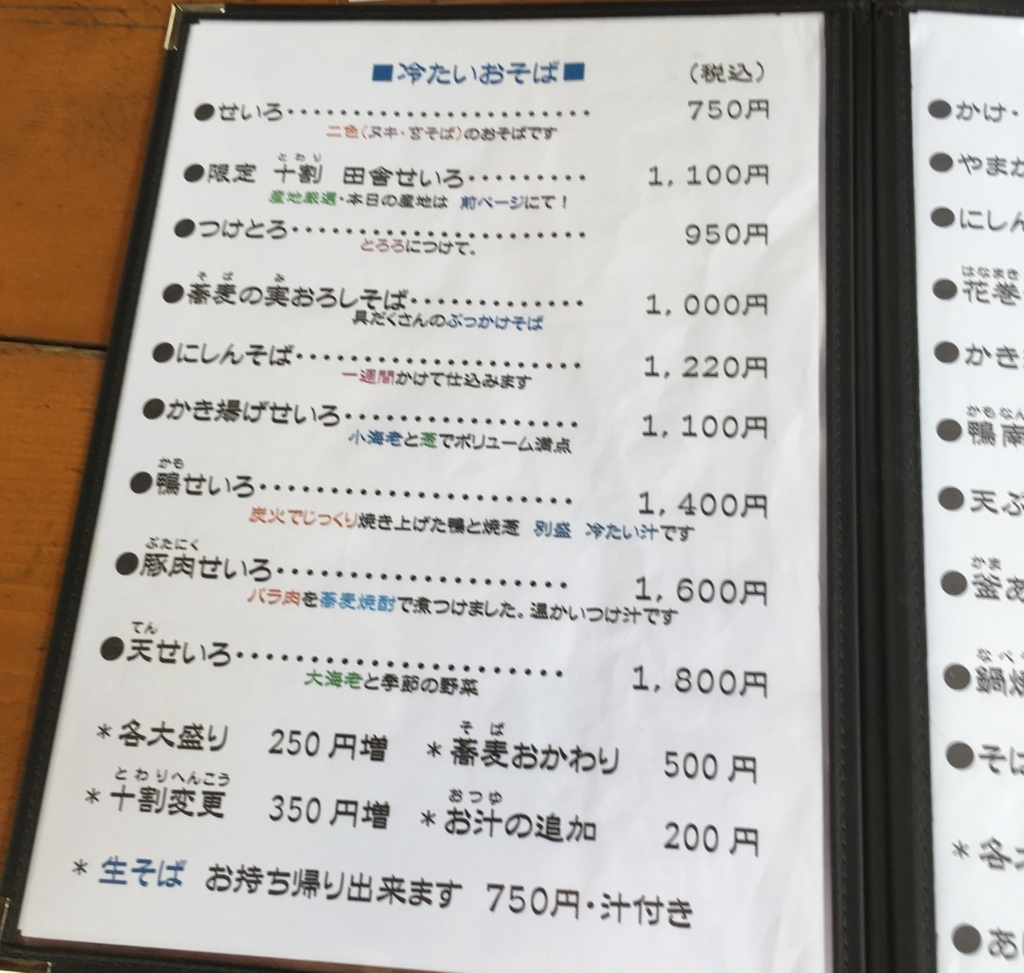 ■冷たいおそば■ (税込)
●せいろ・・・・・・・・・・・・・・・・・・・・・・・ 750円
二色(ヌキ・玄そば)のおそばです
とわり
●限定 十割 田舎せいろ・・・・・・・・・ 1,100円
産地厳選・本日の産地は 前ページにて!
●つけとろ・・・・・・・・・・・・・・・・・・・・・・ 950円
とろろにつけて。
そば み
●蕎麦の実おろしそば・・・・・・・・・・・・・ 1,000円
具だくさんのぶっかけそば
●にしんそば・・・・・・・・・・・・・・・・・・・・・ 1,220円
一週間かけて仕込みます
●かき揚げせいろ・・・・・・・・・・・・・・・・・ 1,100円
小海老と葱でボリューム満点
かも
●鴨せいろ・・・・・・・・・・・・・・・・・・・・・・ 1,400円
炭火でじっくり焼き上げた鴨と焼葱 別盛 冷たい汁です
ぶたにく
●豚肉せいろ・・・・・・・・・・・・・・・・・・・・ 1,600円
バラ肉を蕎麦焼酎で煮つけました。温かいつけ汁です
てん
●天せいろ・・・・・・・・・・・・・・・・・・・・・・ 1,800円
大海老と季節の野菜
そば
*各大盛り 250円増 *蕎麦おかわり 500円
とわりへんこう おつゆ
*十割変更 350円増 *お汁の追加 200円
*生そば お持ち帰り出来ます 750円・汁付き
●かけ・
●やまか
●にしん
はなまき
●花巻
●かき
かもなん
●鴨南
●天ぷ
かま
●釜あ
なべ
●鍋焼
●そば
*各大
●あ